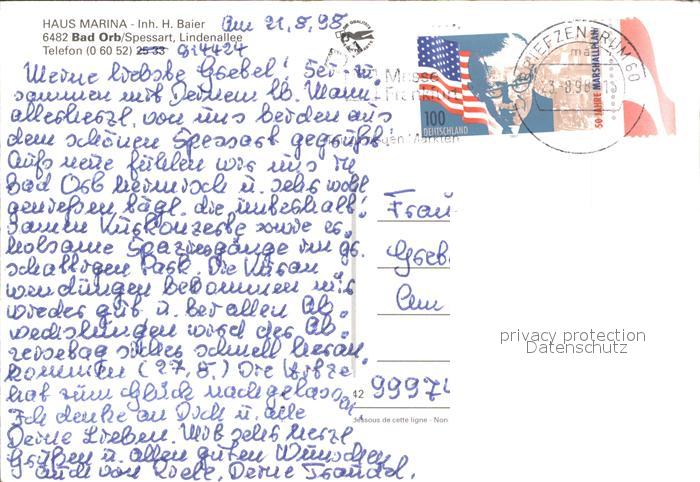 HAUS MARINA - Inh. H. Baier
6482 Bad Orb/Spessart, Lindenallee
Telefon (0 60 52) 25 33 914424
Am 21.8.98.
Meine liebste Gsebel! Sei zu
sammen mit Deinem lb. Mann
allerherzl. von uns beiden aus
dem schönen Spessart gegrüßt!
Aufs neue fühlen wir uns in
Bad Orb heimisch u. sehr wohl
genießen tägl. die unterhalt-
samen Kurkonzerte sowie er-
holsame Spaziergänge im gr.
schattigen Park. Die Kuran
wendungen bekommen mir
wieder gut u. bei allen Ab-
wechslungen wird der Ab-
reisetag sicher schnell heran
kommen (27.8.) Die Hitze
hat zum Glück nachgelassen
Ich denke an Dich u. alle
Deine Lieben. Mit sehr herzl.
Grüßen u. allen guten Wünschen
auch von Deine Traudel.
Messe
Frankfurt
Märkten
100
DEUTSCHLAND
50 JAHRE MARSHALLPLAN
BRIEFZENTRUM 60
ma
-3.-8.98-18
Frau
Gseb
Am
42 9997
dessous de cette ligne - Non
privacy protection
Datenschutz